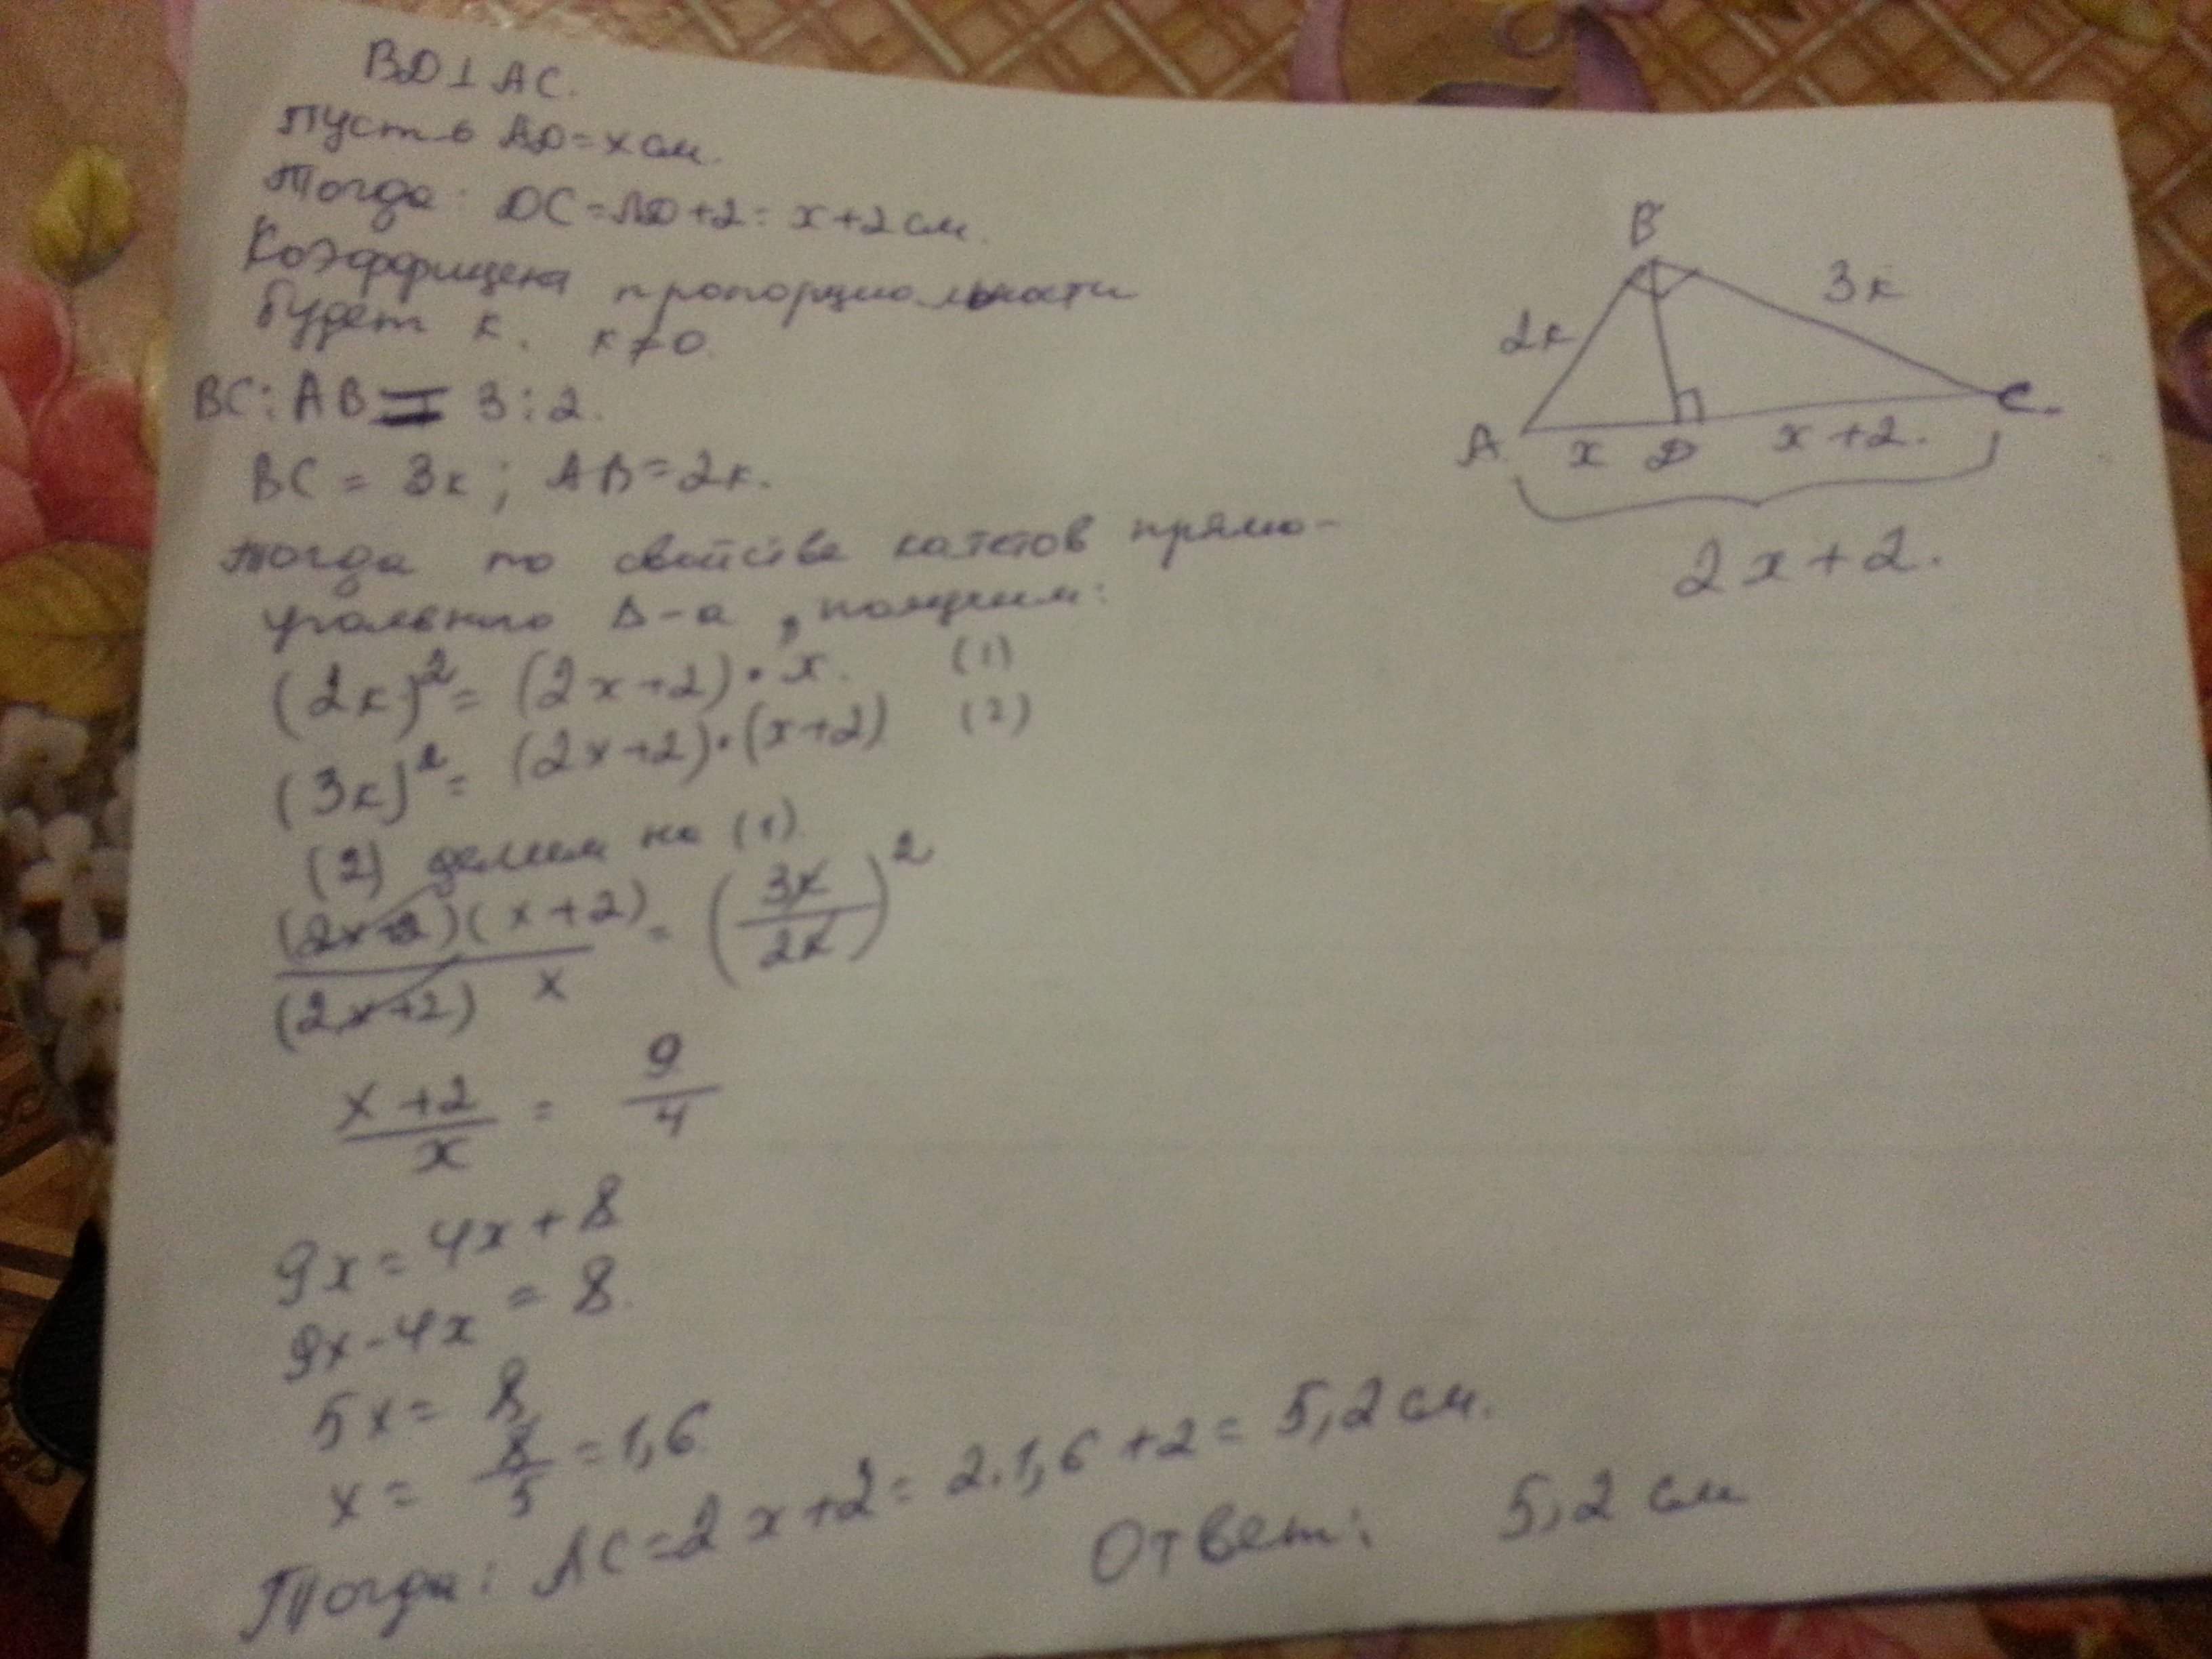 BD⊥AC.
Пусть AD=x см.
Тогда: DC=AD+2=x+2 см.
Коэффициена пропорциональности
будет k. k≠0.
BC:AB=3:2.
BC=3k; AB=2k.
Тогда по свойстве катетов прямо-
угольного Δ-а, получим:
(2k)²=(2x+2)·x. (1)
(3k)²=(2x+2)·(x+2) (2)
(2) делим на (1).
(2x+2)(x+2)/(2x+2) x = (3k/2k)²
x+2/x = 9/4
9x=4x+8
9x-4x=8.
5x=8
x=8/5=1,6
Тогда: AC=2x+2=2·1,6+2=5,2 см.
Ответ: 5,2 см
B
2k
3k
A
x
D
x+2.
C.
2x+2.